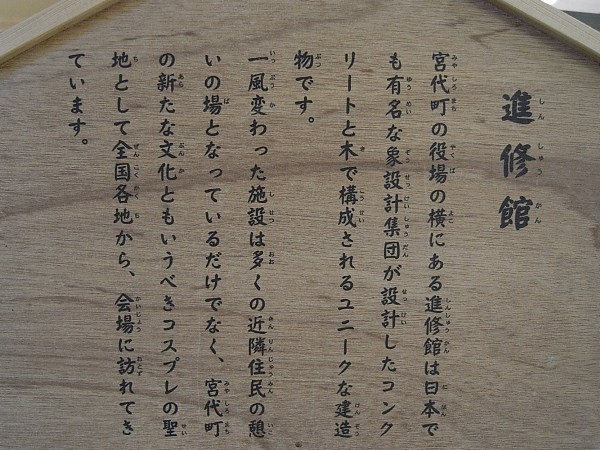 進修館
宮代町の役場の横にある進修館は日本で
も有名な象設計集団が設計したコンク
リートと木で構成されるユニークな建造
物です。
一風変わった施設は多くの近隣住民の憩
いの場となっているだけでなく、宮代町
の新たな文化ともいうべきコスプレの聖
地として全国各地から、会場に訪れてき
ています。